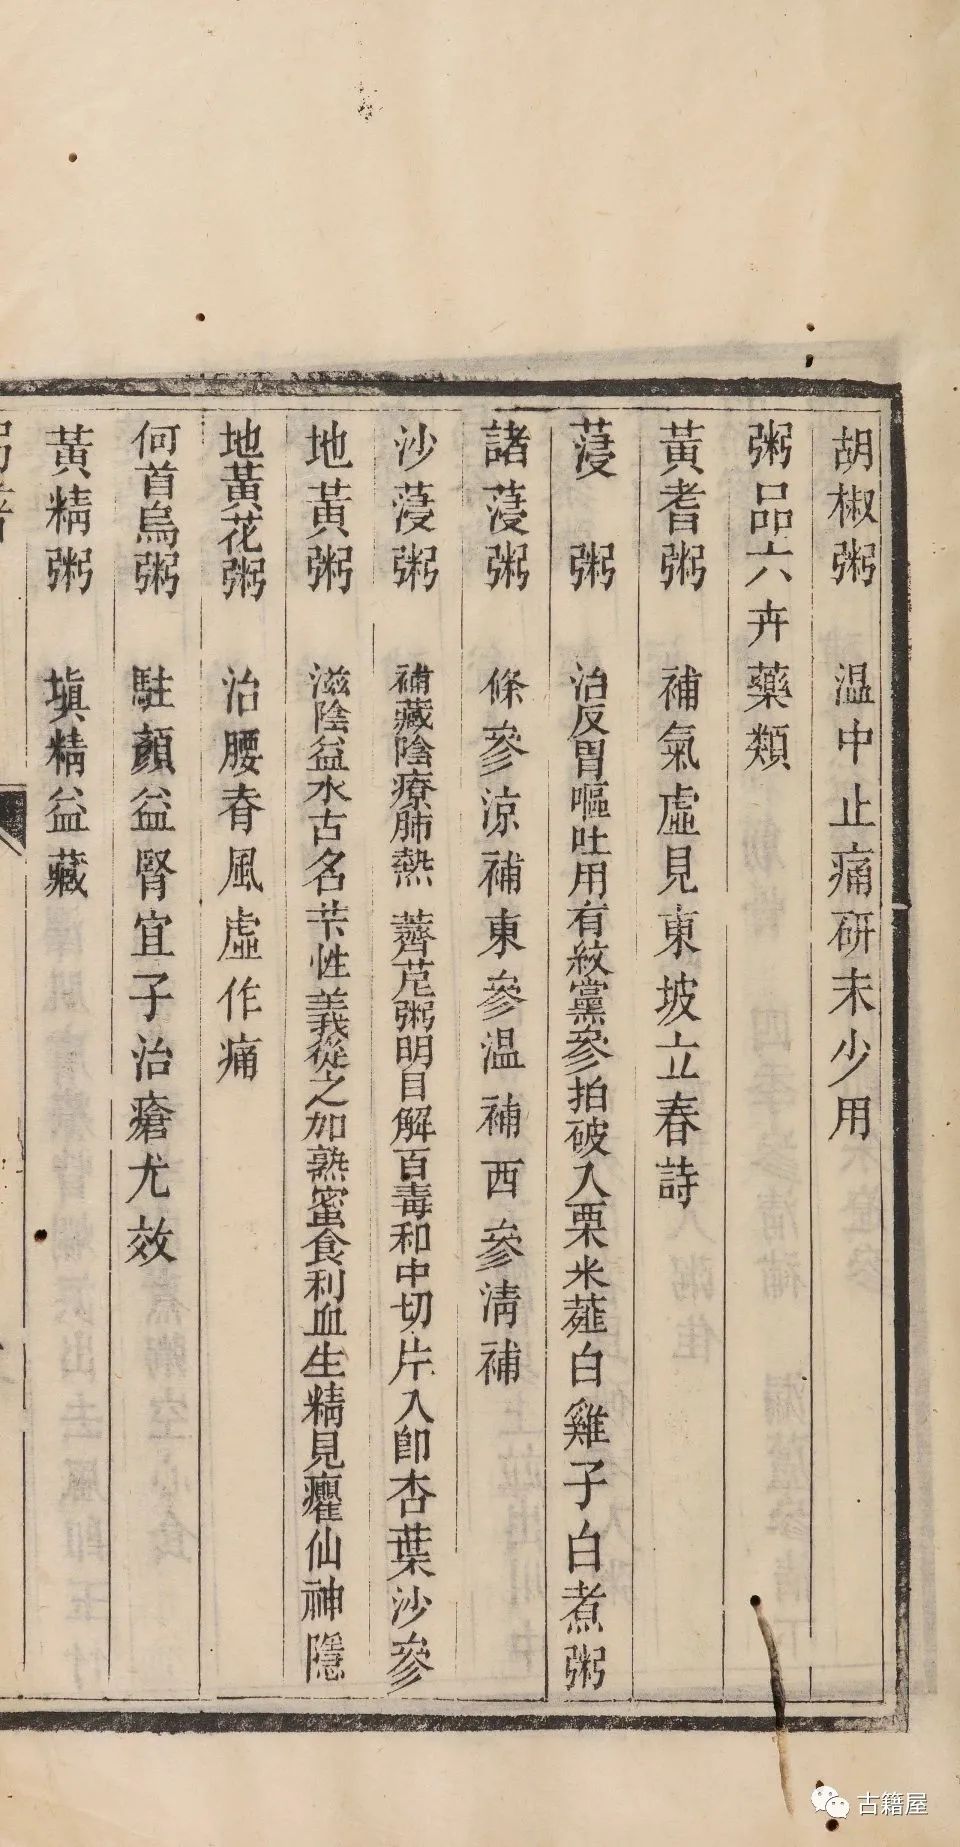 胡椒粥　温中止痛研末少用
粥品六卉藥類
黃耆粥　補氣虛見東坡立春詩
葠粥　治反胃嘔吐用有紋黨參拍破入栗米薤白雞子白煮粥
諸葠粥　條參涼補東參温補西參淸補
沙葠粥　補藏陰療肺熱　薺苨粥明目解百毒和中切片入卽杏葉沙參
地黃粥　滋陰益水古名芐性義從之加熟蜜食利血生精見癯仙神隱
地黃花粥　治腰脊風虛作痛
何首烏粥　駐顏益腎宜子治瘡尤效
黃精粥　塡精益藏
粥譜
古籍屋